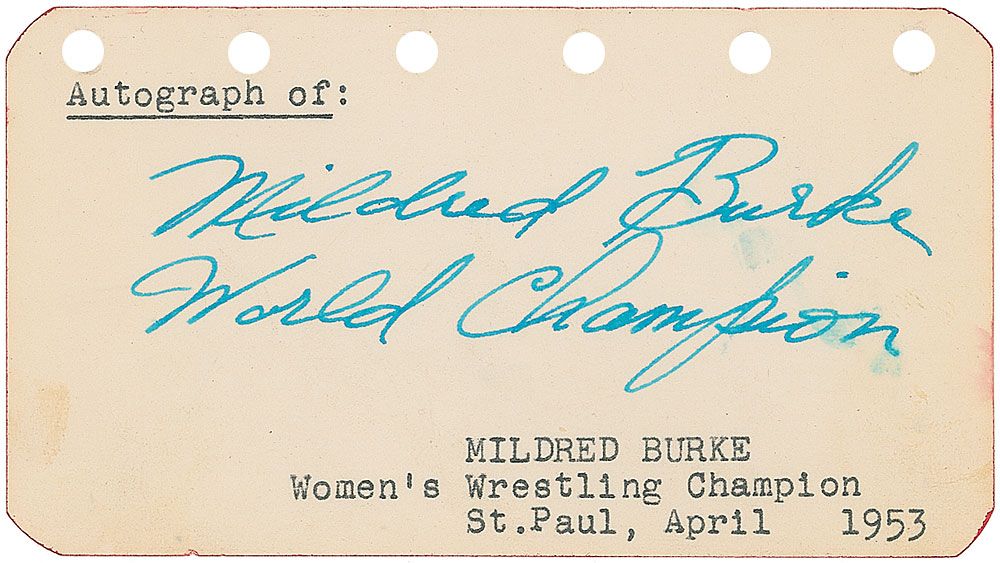 Autograph of:
Mildred Burke
World Champion
MILDRED BURKE
Women's Wrestling Champion
St.Paul, April 1953